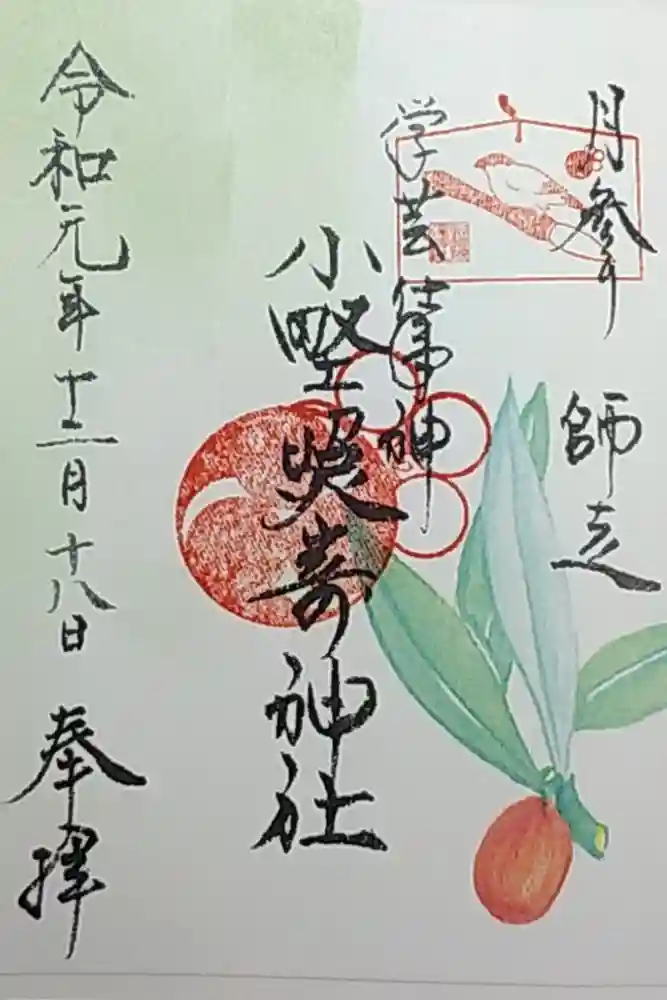 月参り 師走
学芸仕事神
小野照崎神社
令和元年十二月十八日 奉拝